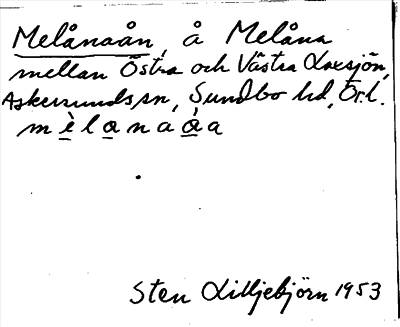 Melånaån, å Melåna
mellan Östra och Västra Laxsjön,
Askersunds sn, Sundbo hd, Ör.l.
m è l o n a å a
Sten Lilljebjörn 1953